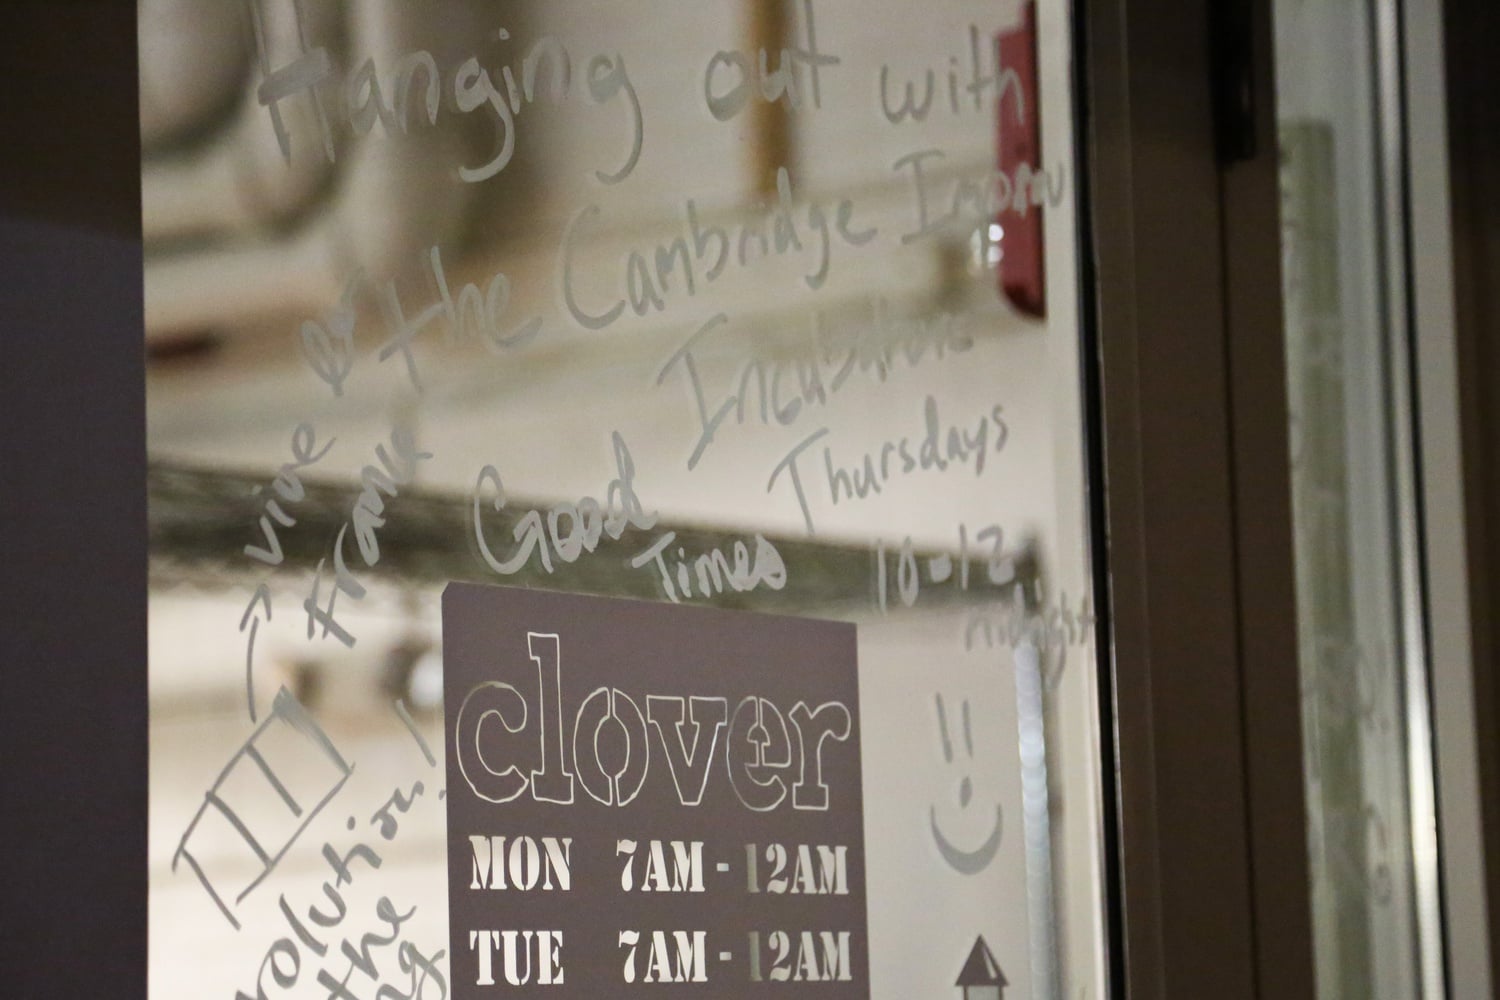 Hanging out with
the Cambridge Improv
Incubator
Good Times
Thursdays
10-12
midnight
vive
France
olution!
the
clover
MON 7AM - 12AM
TUE 7AM - 12AM